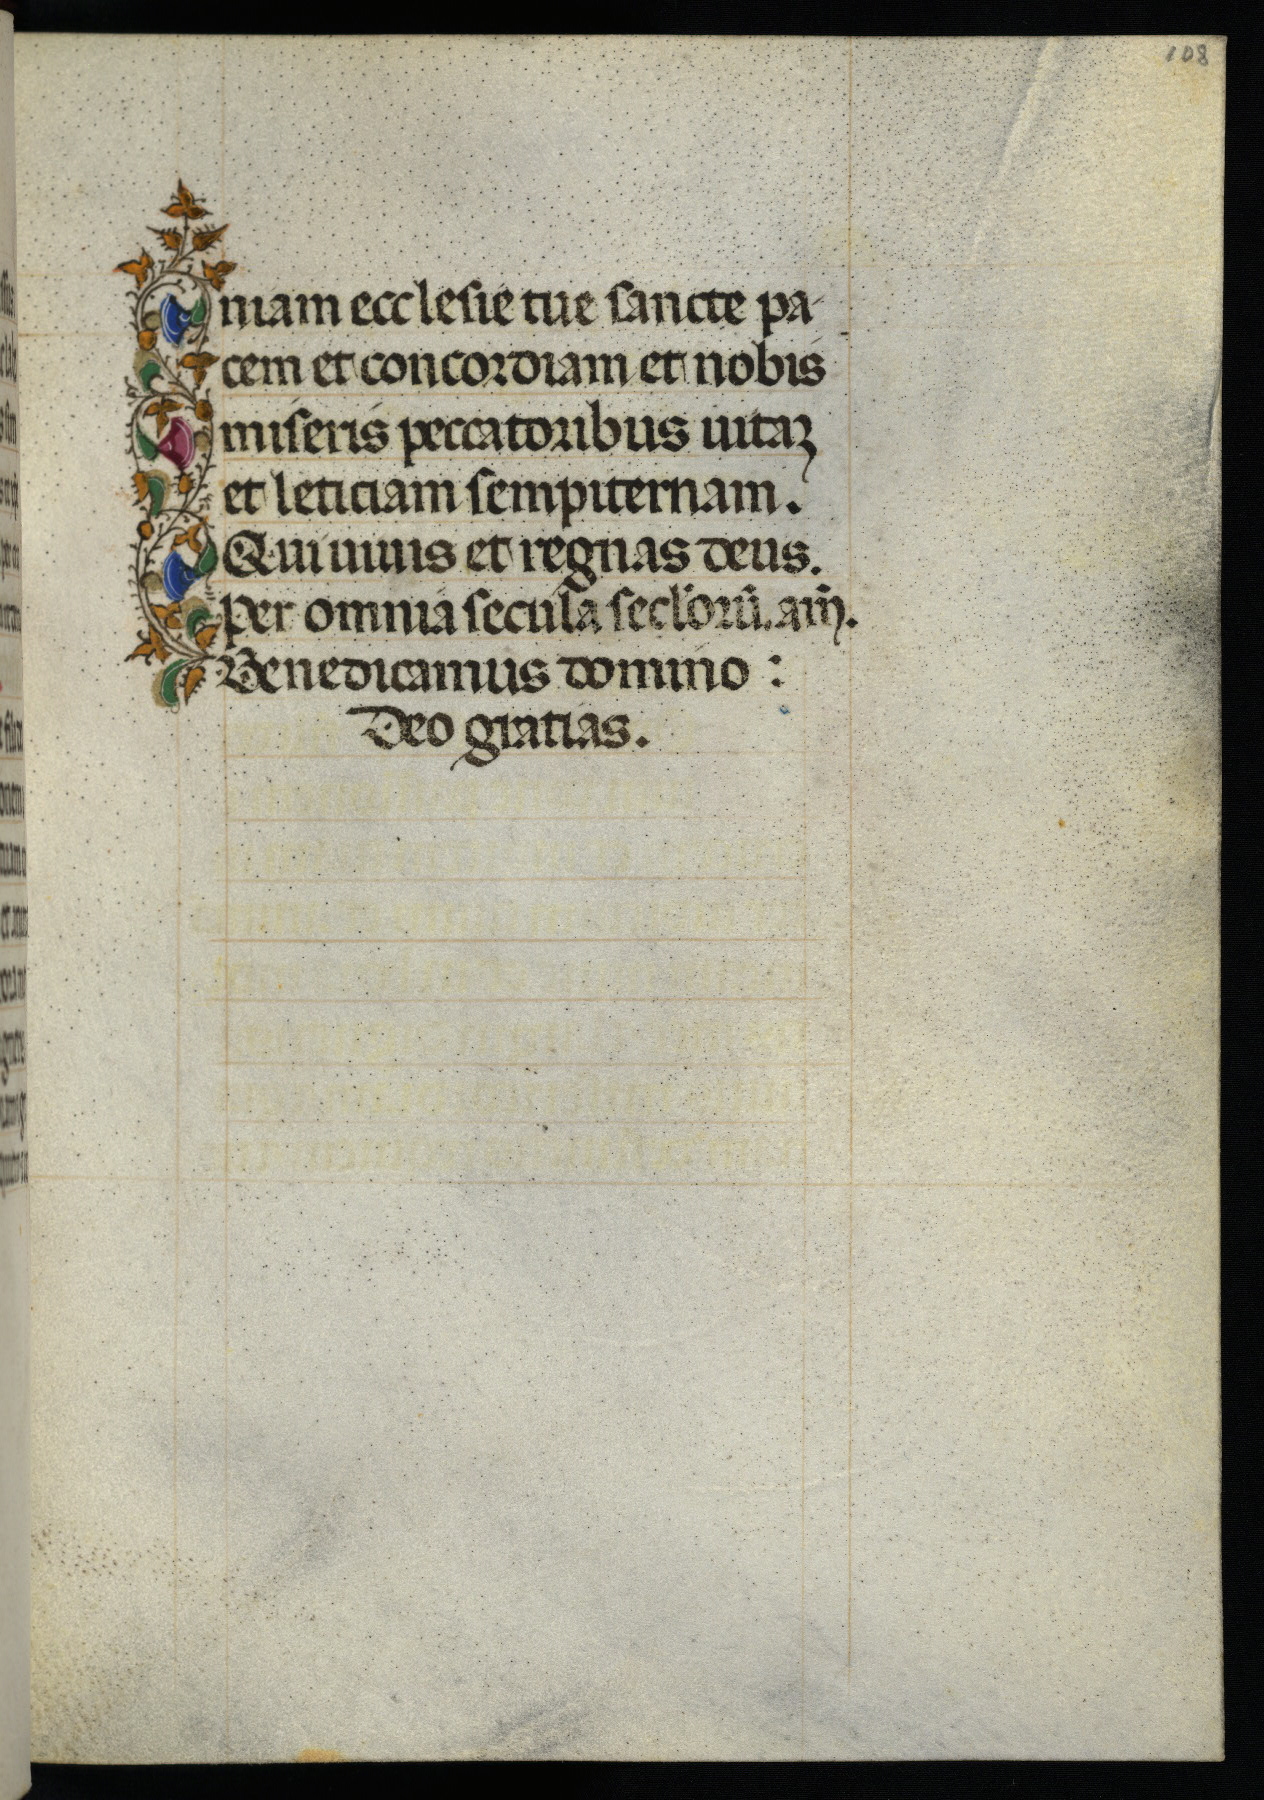 108
niam ecclesie tue sancte pa-
cem et concordiam et nobis
miseris peccatoribus uitaꝫ
et leticiam sempiternam.
Qui uiuis et regnas deus.
per omnia secula secl'orū. am̄.
Benedicamus domino :
Deo gratias.